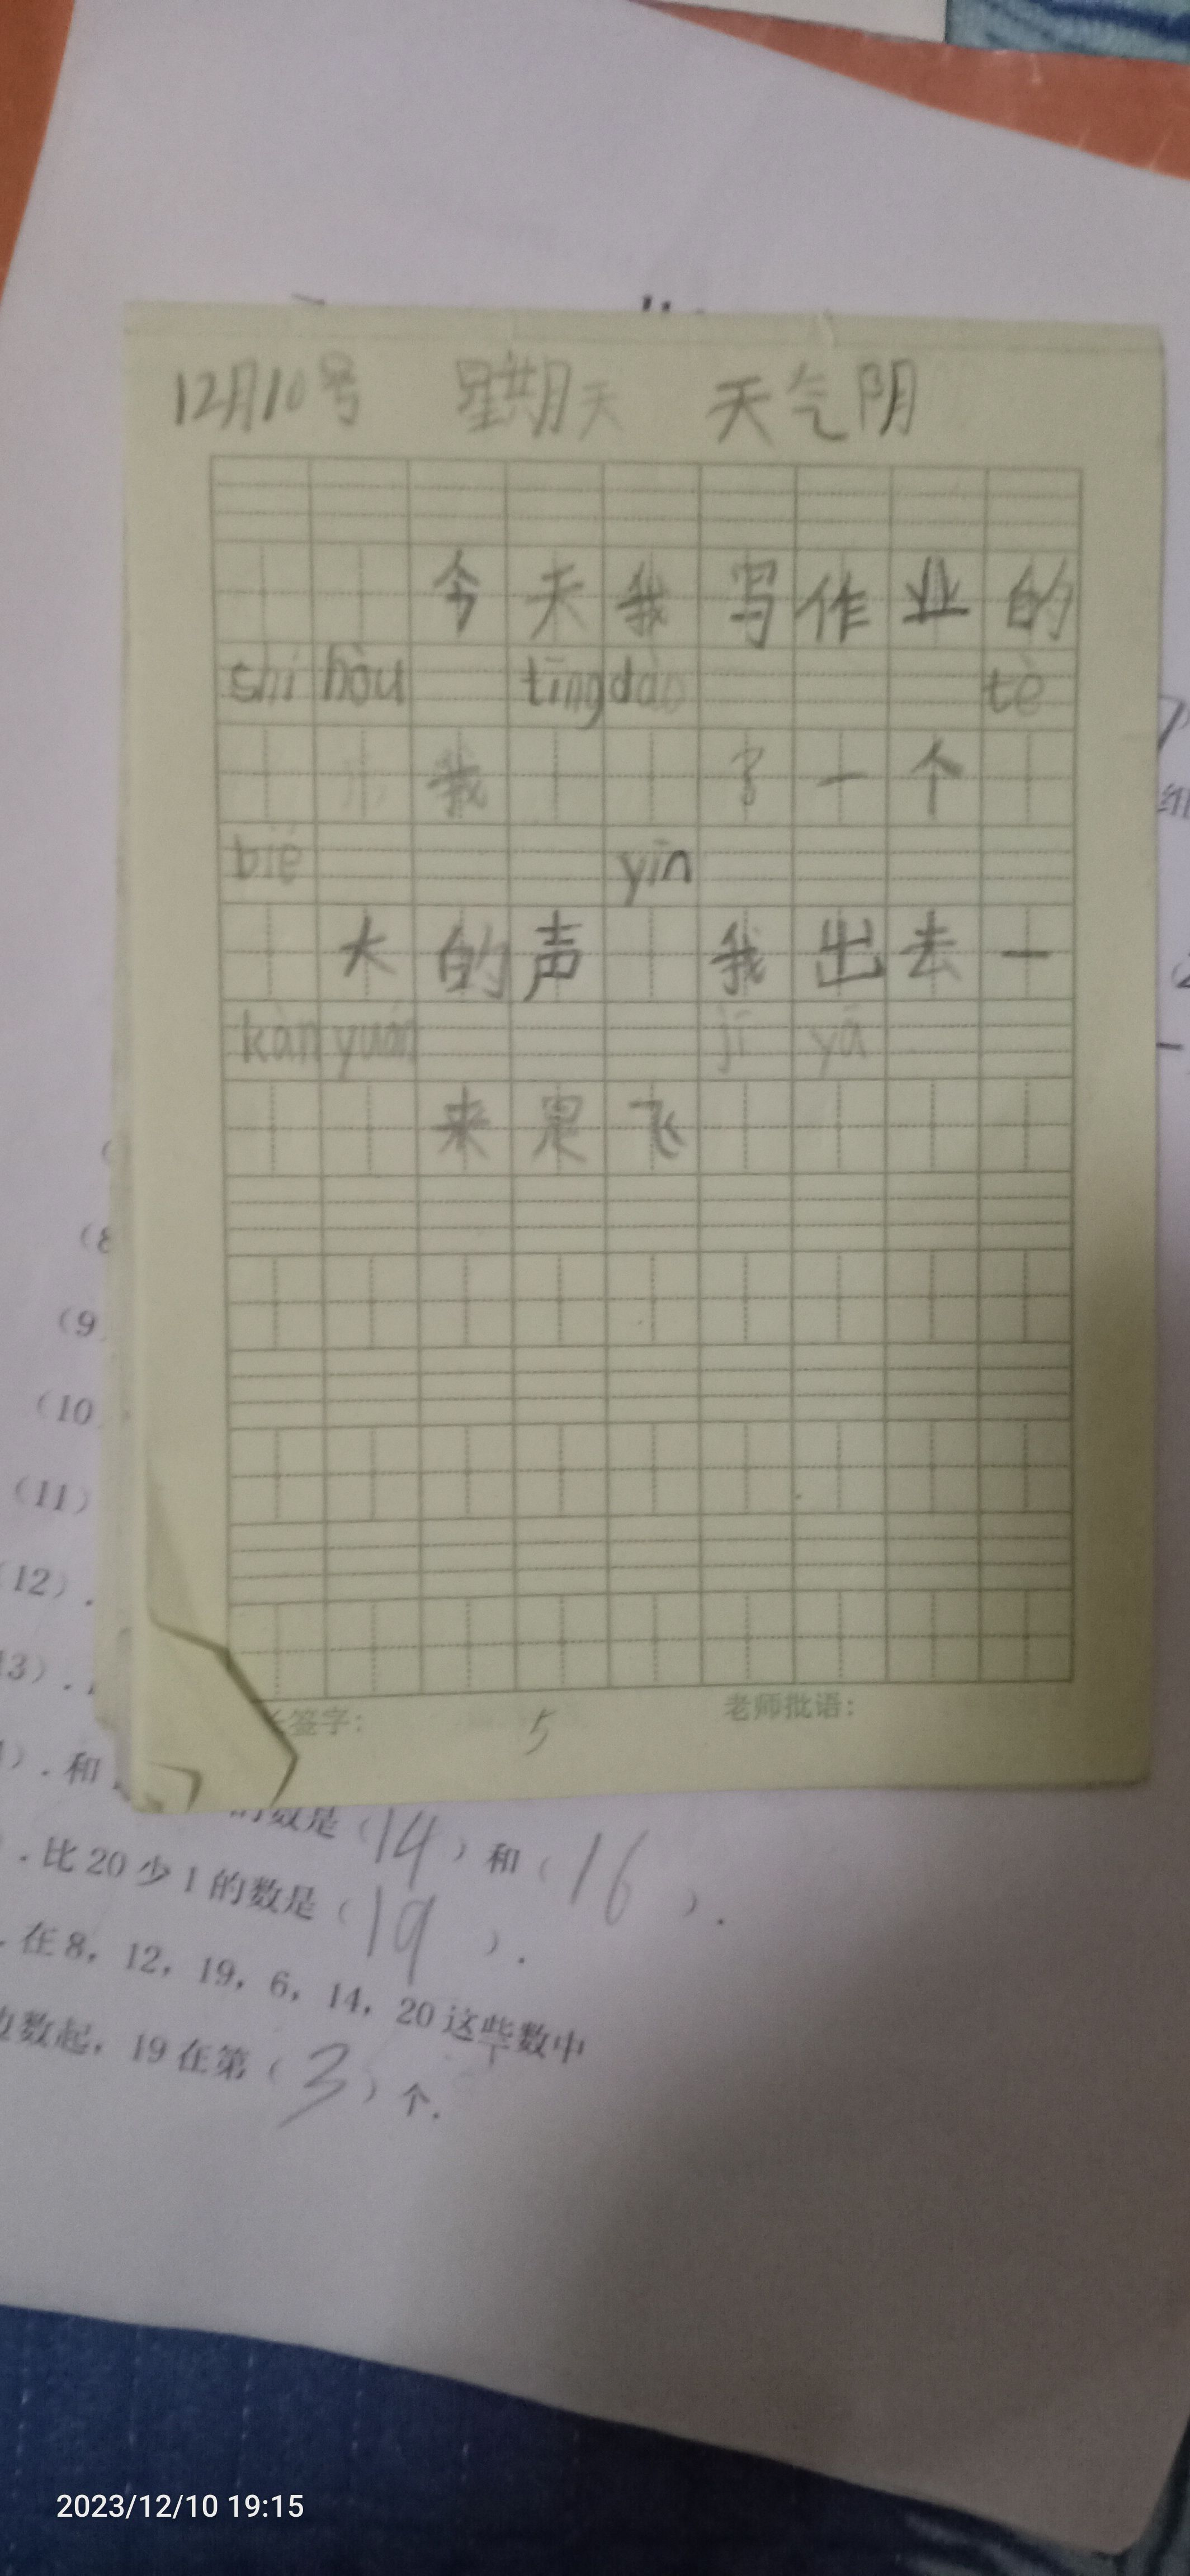 12月10号 星期天 天气阴
今天我写作业的
shí hòu tīng dào tè
我 了一个
bié yīn
大的声 我出去一
kàn yuán jī yā
来是飞
签字: 5 老师批语:
(9
(10
(11)
(12).
13).
.和
的数是(14)和(16).
.比20少1的数是(19).
.在8,12,19,6,14,20这些数中
边数起,19在第(3)个.
2023/12/10 19:15